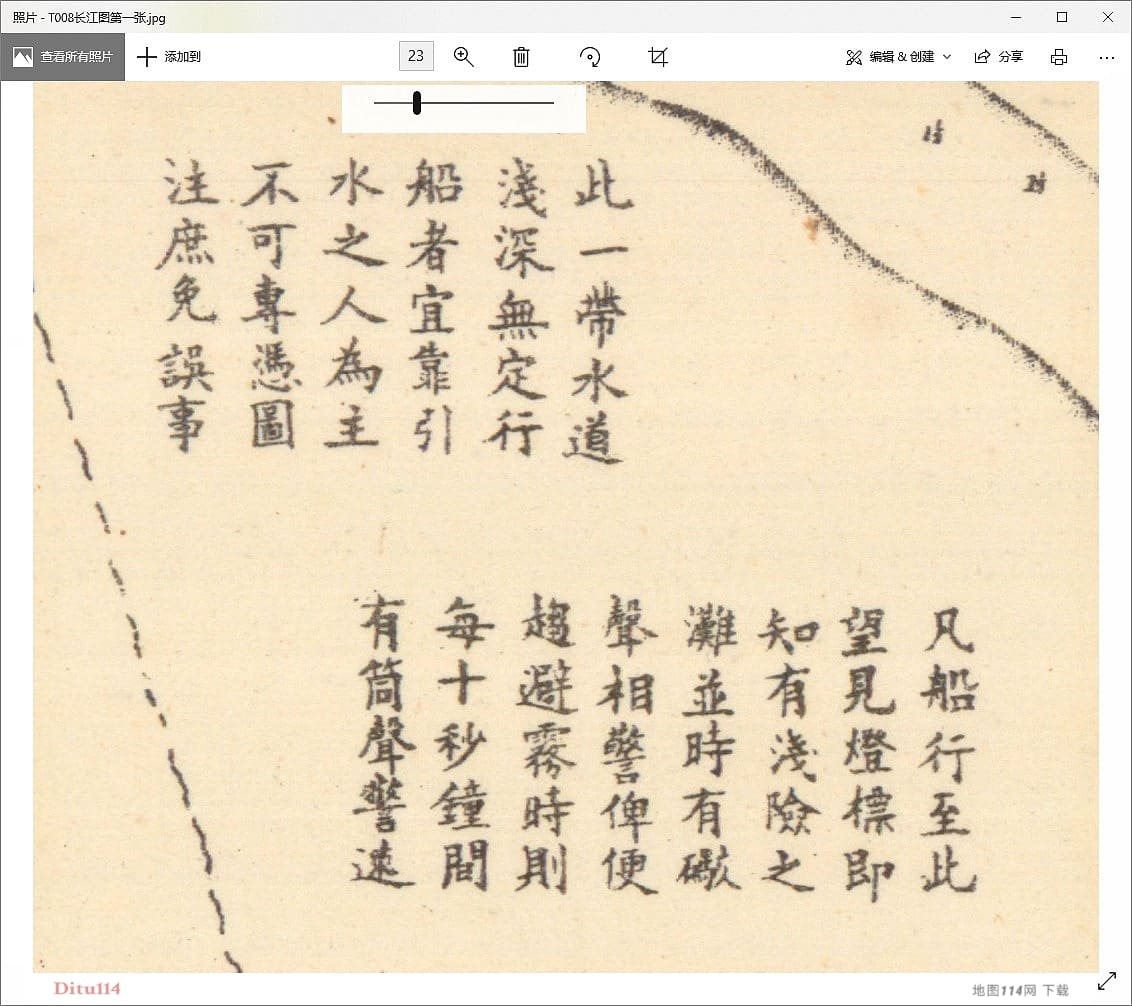 照片 - T008长江图第一张.jpg
查看所有照片
添加到
23
编辑 & 创建
分享
此一帶水道
淺深無定行
船者宜靠引
水之人為主
不可專憑圖
注庶免誤事
凡船行至此
望見燈標即
知有淺險之
灘並時有礮
聲相警俾便
趨避霧時則
每十秒鐘間
有筒聲警遠
Ditu114
地图114网 下载